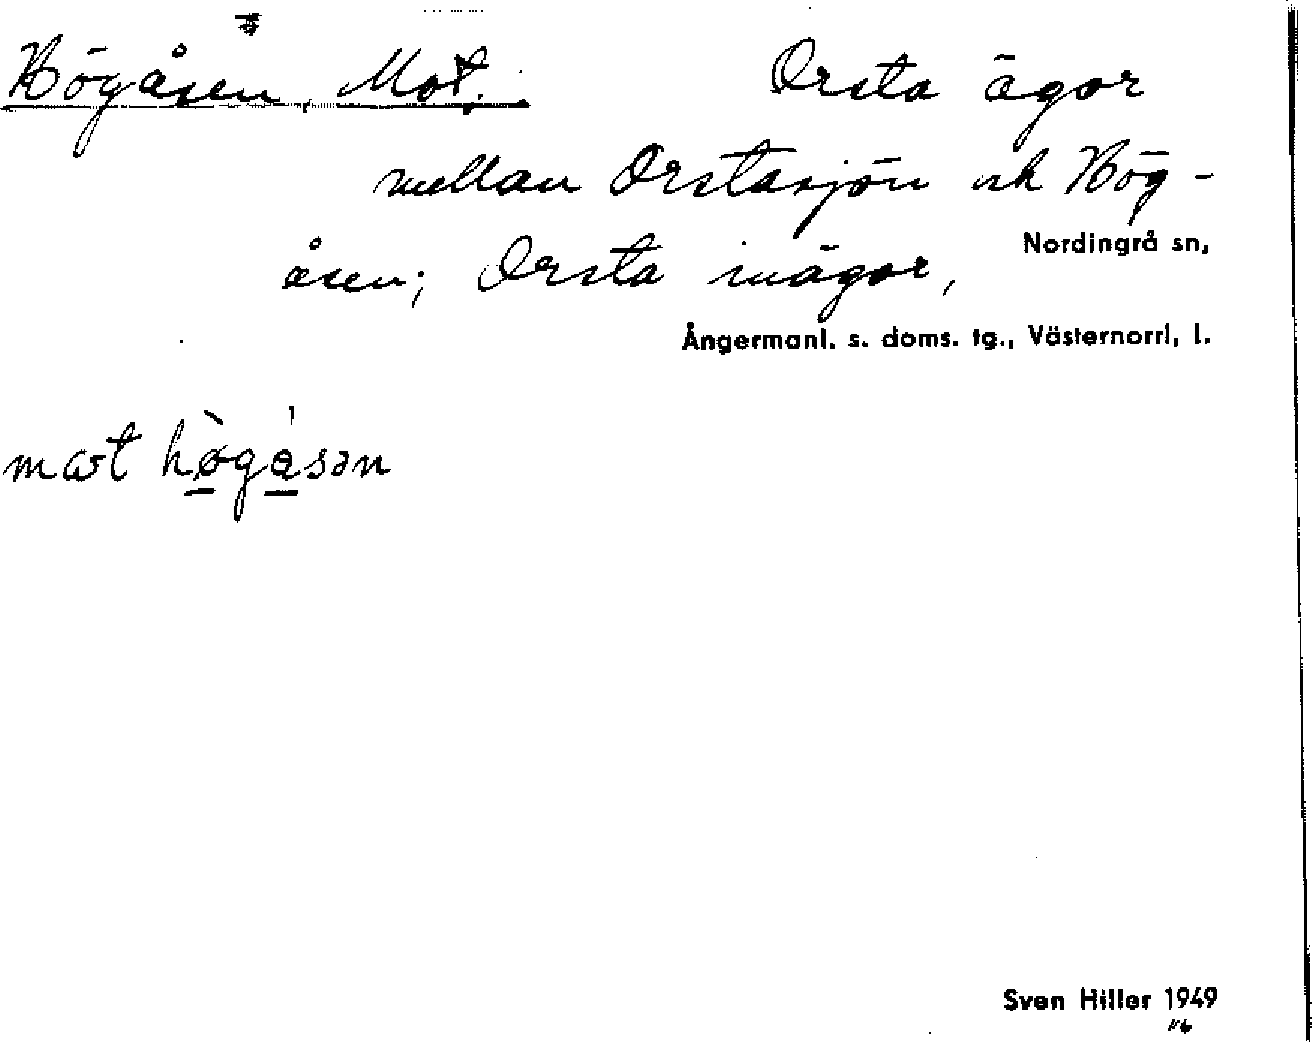 Högåsen, Mot.
Orsta ägor
mellan Orstasjön och Hög-
åsen; Orsta inägor,
Nordingrå sn,
Ångermanl. s. doms. tg., Västernorrl, l.
mot högåsən
Sven Hiller 1949